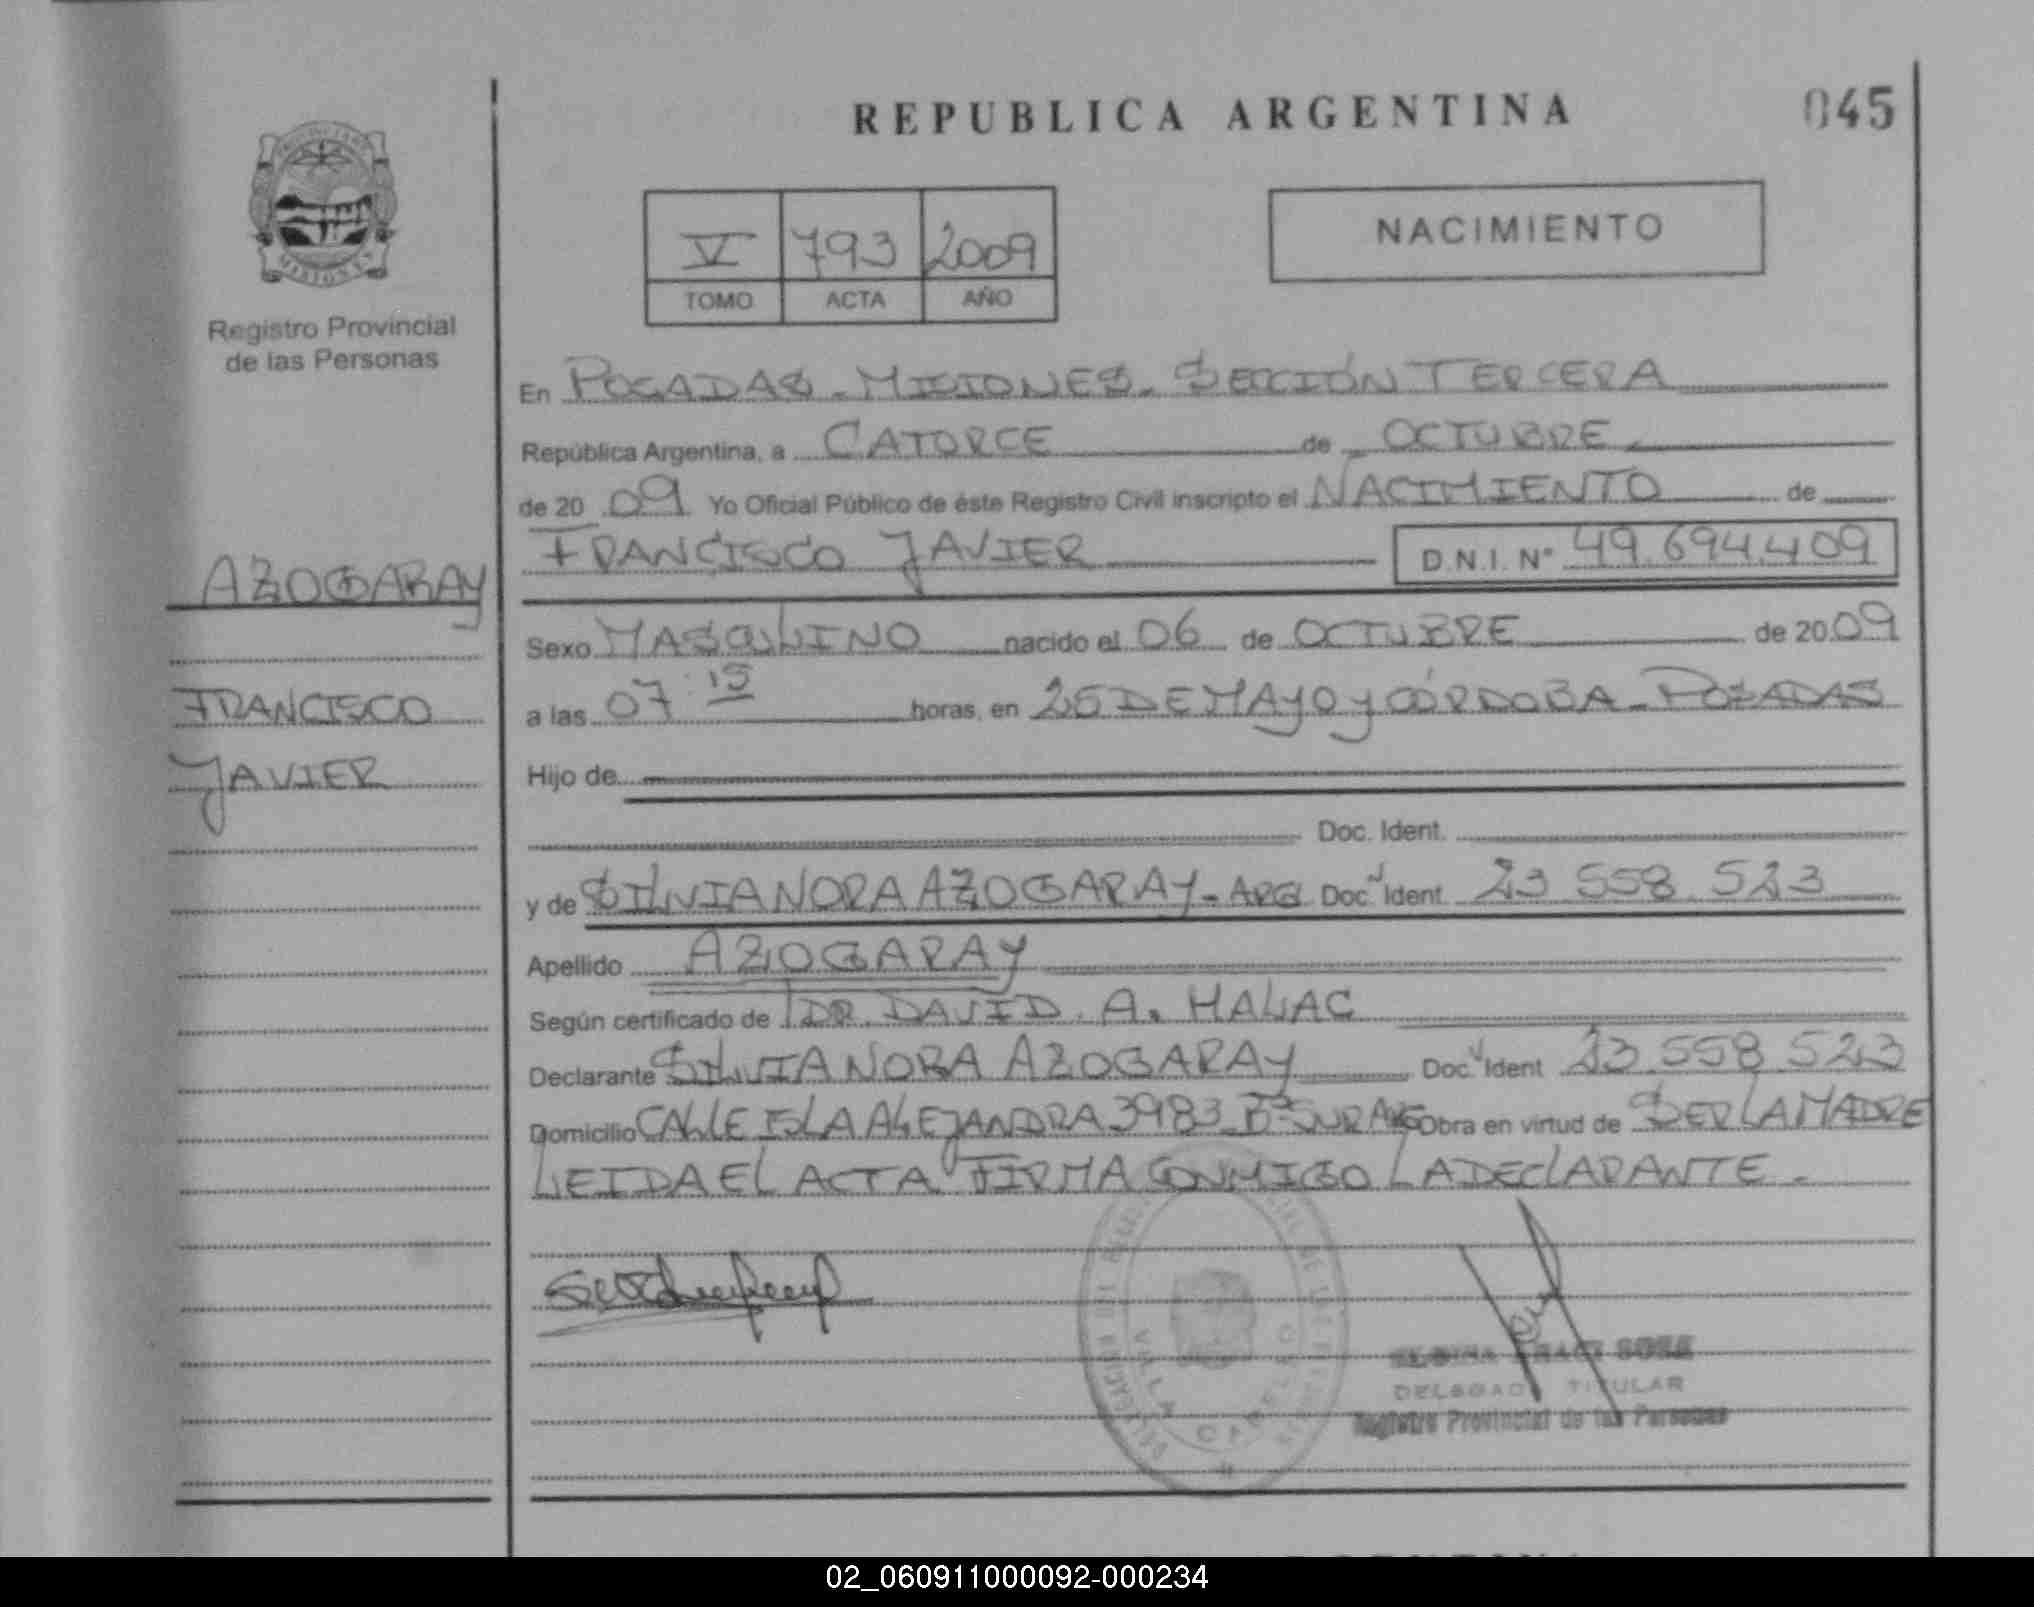 REPUBLICA ARGENTINA
045
V 793 2009
TOMO ACTA AÑO
NACIMIENTO
MISIONES
Registro Provincial
de las Personas
AZOGARAY
FRANCISCO
JAVIER
En POSADAS - MISIONES - SECCIÓN TERCERA
República Argentina, a CATORCE de OCTUBRE
de 20 09 Yo Oficial Público de éste Registro Civil inscripto el NACIMIENTO de
FRANCISCO JAVIER D.N.I. N° 49.694.409
Sexo MASCULINO nacido el 06 de OCTUBRE de 20 09
a las 07:15 horas, en 25 DE MAYO y CÓRDOBA - POSADAS
Hijo de
Doc. Ident.
y de SILVIA NORA AZOGARAY - ARG. Doc. Ident. 23 558 523
Apellido AZOGARAY
Según certificado de DR. DAVID A. HALAC
Declarante SILVIA NORA AZOGARAY Doc. Ident 23 558 523
Domicilio CALLE ISLA ALEJANDRA 3983 - Bº SUR Obra en virtud de SER LA MADRE
LEIDA EL ACTA FIRMA CONMIGO LA DECLARANTE -
SOSA
DELEGADO TITULAR
Registro Provincial de las Personas
02_060911000092-000234